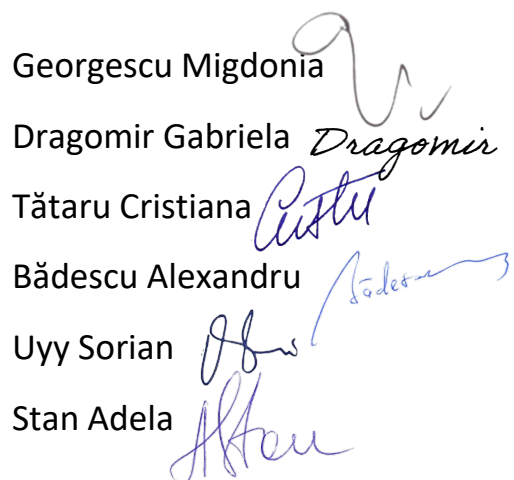 Georgescu Migdonia
Dragomir Gabriela Dragomir
Tătaru Cristiana
Bădescu Alexandru
Uyy Sorian
Stan Adela AStan